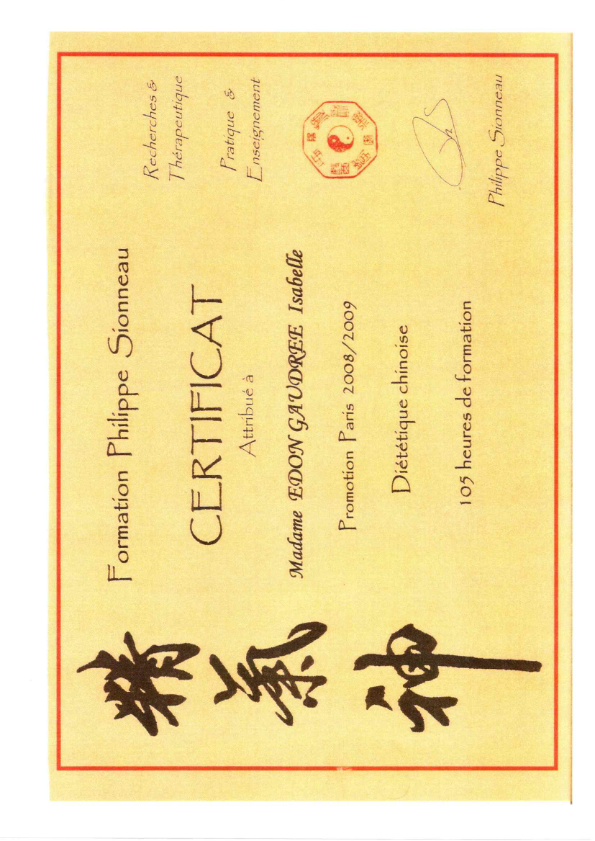 精氣神
Formation Philippe Sionneau
CERTIFICAT
Attribué à
Madame EDON GAUDREE Isabelle
Promotion Paris 2008/2009
Diététique chinoise
105 heures de formation
Recherches &
Thérapeutique
Pratique &
Enseignement
Philippe Sionneau